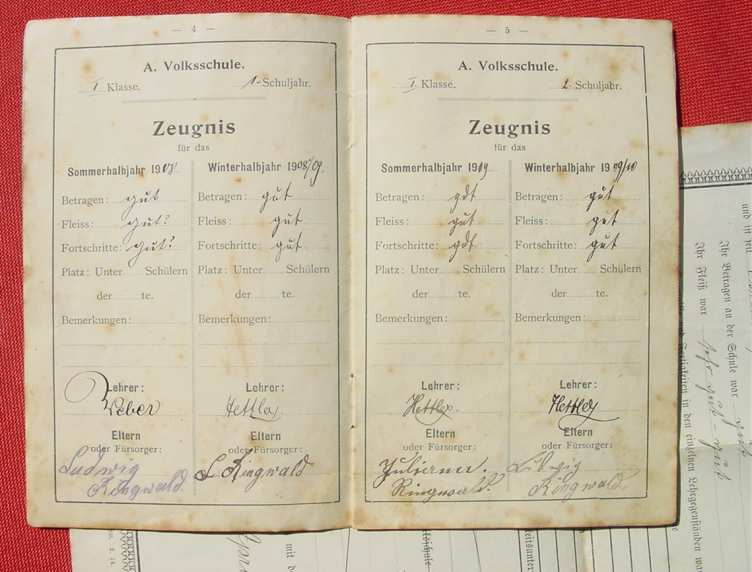 — 4 —
A. Volksschule.
I Klasse. 1. Schuljahr.
Zeugnis
für das
Sommerhalbjahr 1908. Winterhalbjahr 1908/09.
Betragen: gut Betragen: gut
Fleiss: gut? Fleiss: gut
Fortschritte: gut? Fortschritte: gut
Platz: Unter Schülern Platz: Unter Schülern
der te. der te.
Bemerkungen: Bemerkungen:
Lehrer: Lehrer:
Weber
Eltern Eltern
oder Fürsorger: oder Fürsorger:
Ludwig L. Ringwald
Ringwald.
— 5 —
A. Volksschule.
I Klasse. 2. Schuljahr.
Zeugnis
für das
Sommerhalbjahr 1909. Winterhalbjahr 1909/10
Betragen: gut Betragen: gut
Fleiss: gut Fleiss: gut
Fortschritte: gut Fortschritte: gut
Platz: Unter Schülern Platz: Unter Schülern
der te. der te.
Bemerkungen: Bemerkungen:
Lehrer: Lehrer:
Eltern Eltern
oder Fürsorger: oder Fürsorger:
Juliana. Ludwig
Ringwald. Ringwald
Ihr Betragen an der Schule war
Ihr Fleiß war sehr gut - gut
in den einzelnen Lehrgegenständen war